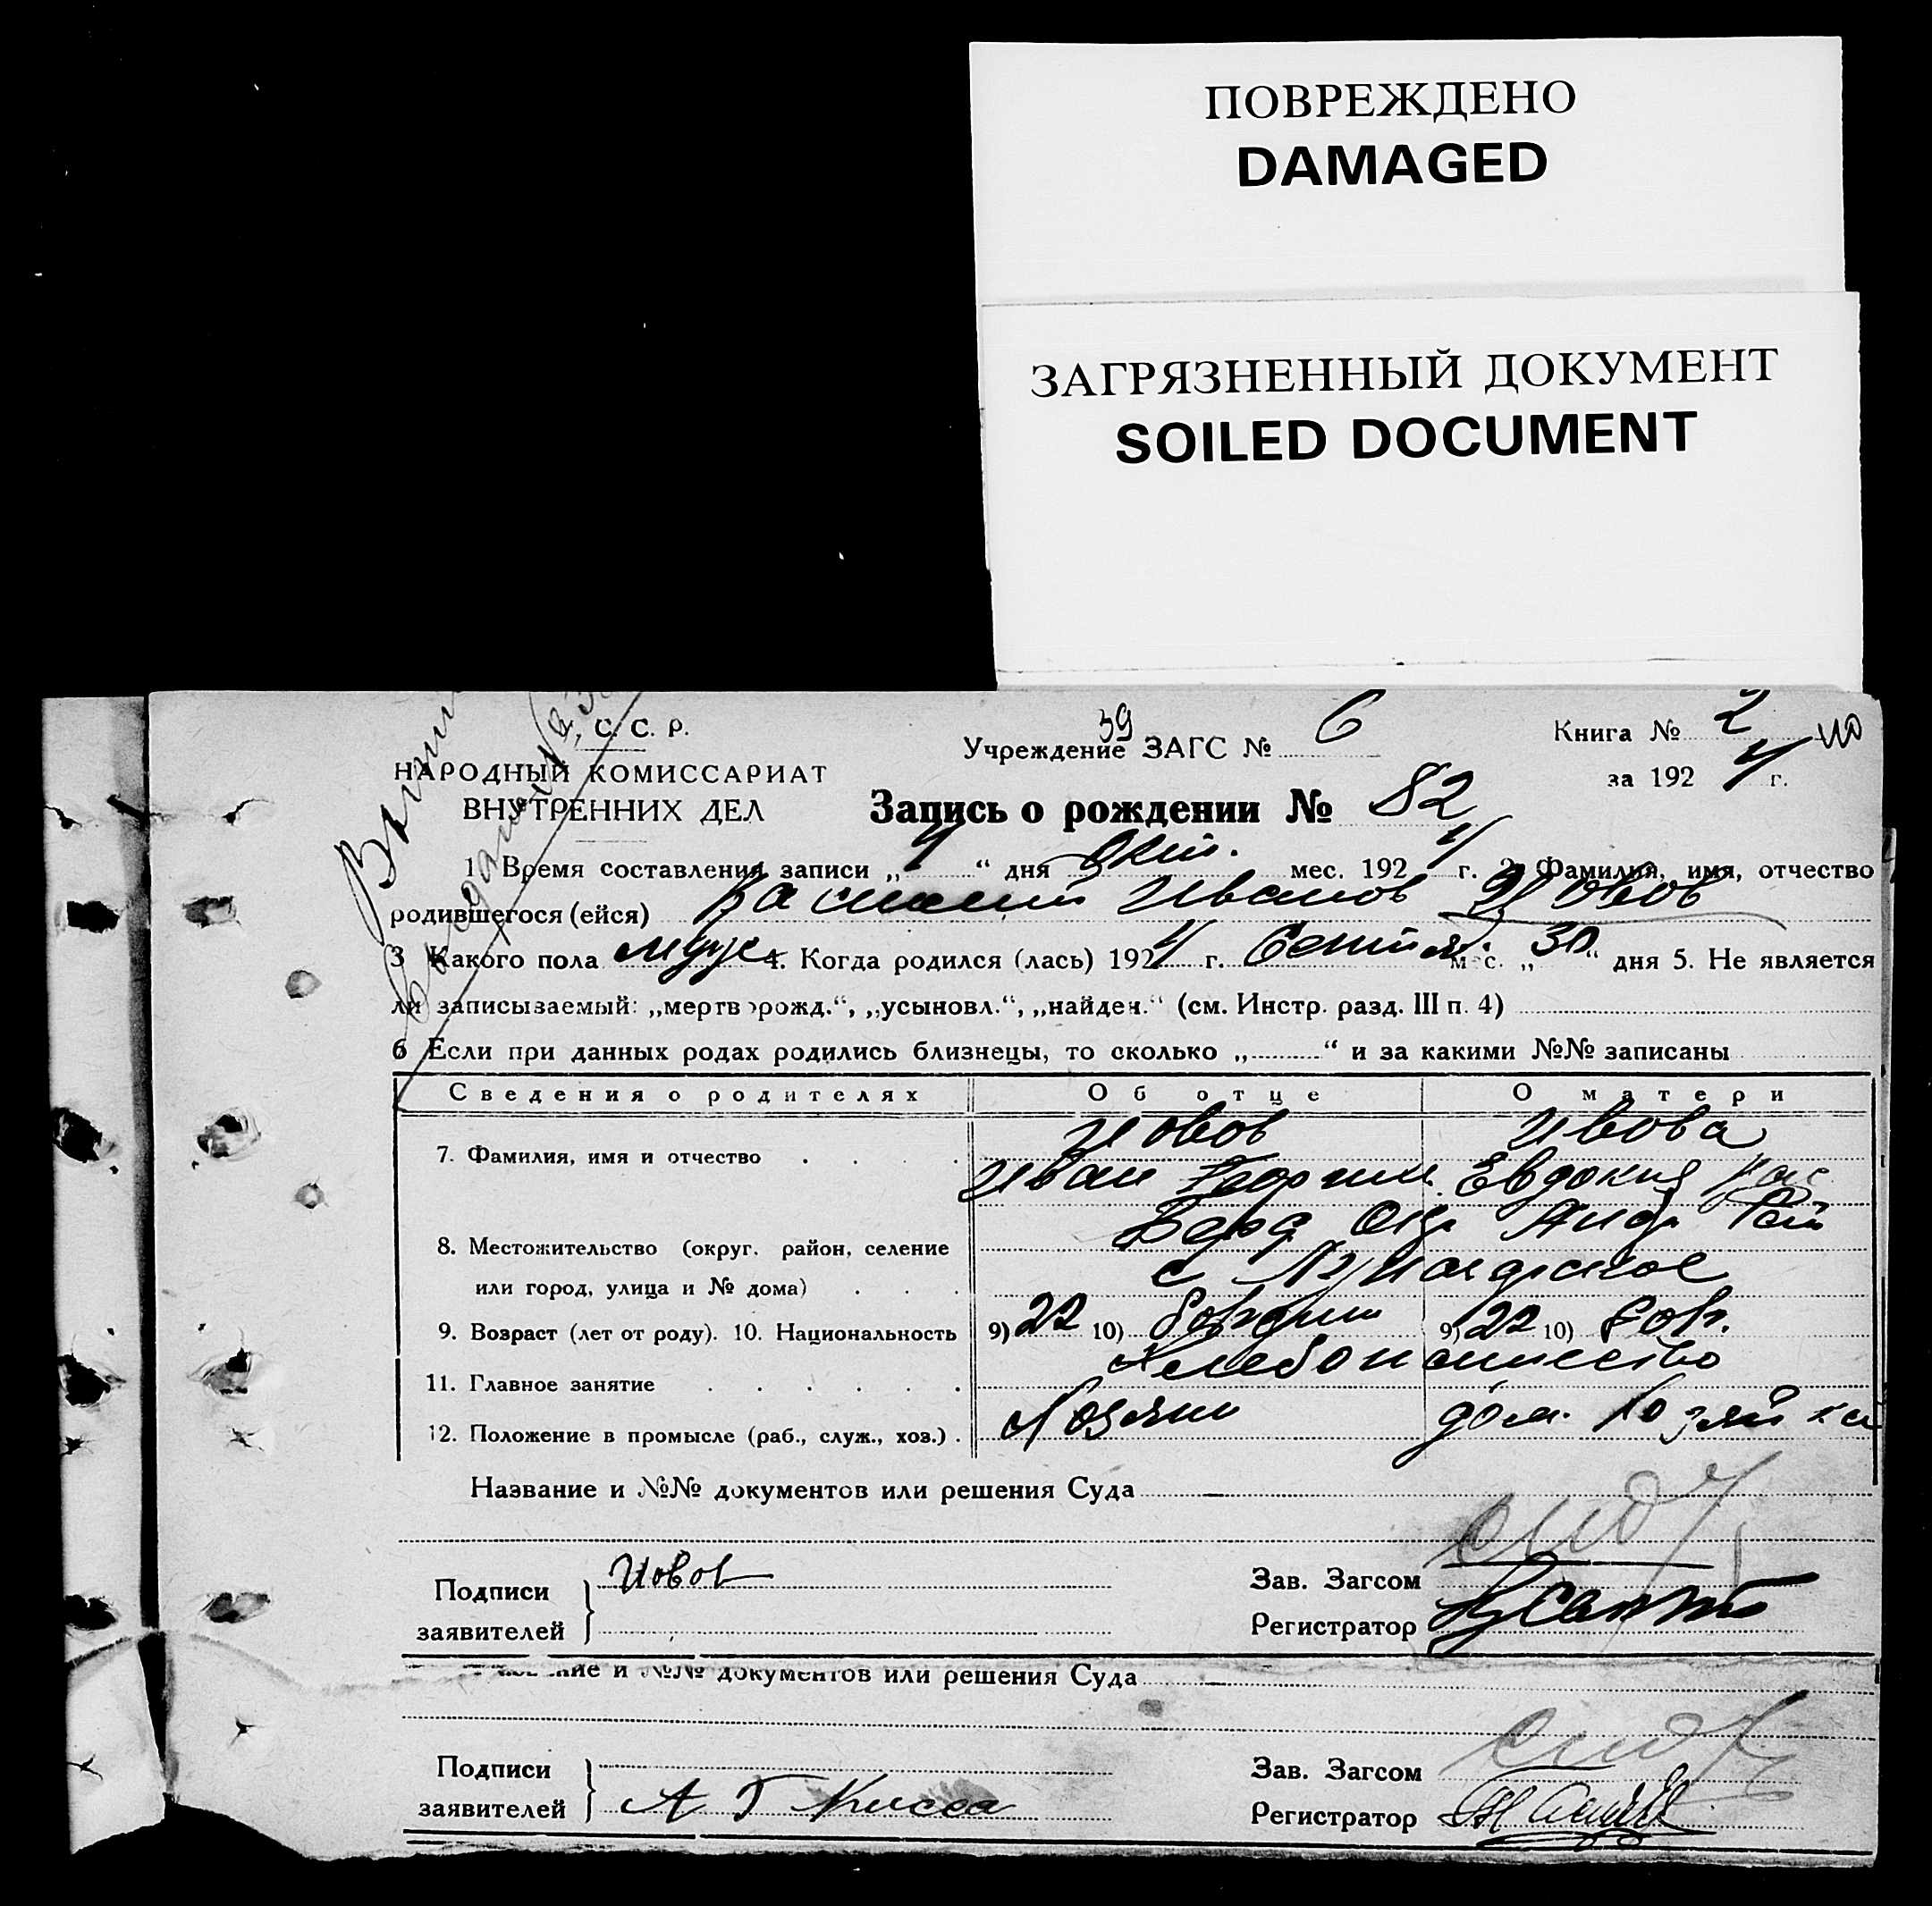 ПОВРЕЖДЕНО
DAMAGED
ЗАГРЯЗНЕННЫЙ ДОКУМЕНТ
SOILED DOCUMENT
С. С. Р.
НАРОДНЫЙ КОМИССАРИАТ
ВНУТРЕННИХ ДЕЛ
39
Учреждение ЗАГС № 6
Книга № 2
за 1924 г.
Запись о рождении № 82
1. Время составления записи „4“ дня Окт. мес. 1924 г. 2. Фамилия, имя, отчество
родившегося (ейся) Иванов Иовов
3 Какого пола муж. 4. Когда родился (лась) 1924 г. Сентя. мес. „30“ дня 5. Не является
ли записываемый: „мертворожд.“, „усыновл.“, „найден.“ (см. Инстр. разд. III п. 4)
6 Если при данных родах родились близнецы, то сколько „ “ и за какими №№ записаны
Сведения о родителях Об отце О матери
7. Фамилия, имя и отчество Иовов Ивова
Иван Георгии. Евдокия
8. Местожительство (округ, район, селение Берд. Окр. Андр. Рай
или город, улица и № дома) с.
9. Возраст (лет от роду). 10. Национальность 9) 22 10) 9) 22 10)
11. Главное занятие Хлебопашество
12. Положение в промысле (раб., служ., хоз.) Хозяин дом. хозяйка
Название и №№ документов или решения Суда —
Подписи заявителей Иовов
Зав. Загсом
Регистратор
ние и №№ документов или решения Суда —
Подписи заявителей А Г Кисса
Зав. Загсом
Регистратор